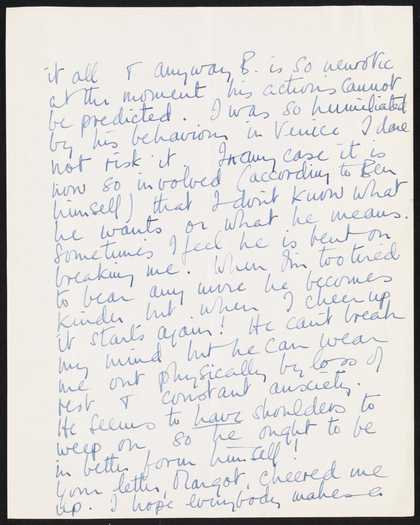 it all & anyway B. is so neurotic
at the moment his actions cannot
be predicted. I was so humiliated
by his behaviour in Venice I dare
not risk it. In any case it is
now so involved (according to Ben
himself) that I don't know what
he wants or what he means.
Sometimes I feel he is bent on
breaking me. When I'm too tired
to bear any more he becomes
kinder but when I cheer up
it starts again! He can't break
my mind but he can wear
me out physically by loss of
rest & constant anxiety.
He seems to have shoulders to
weep on so he ought to be
in better form himself!
Your letter, Margot, cheered me
up. I hope everybody makes a